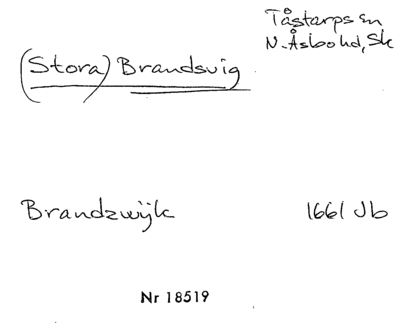 Tåstarps sn
N. Åsbo hd, Sk
(Stora) Brandsvig
Brandzwijk 1661 Jb
Nr 18519